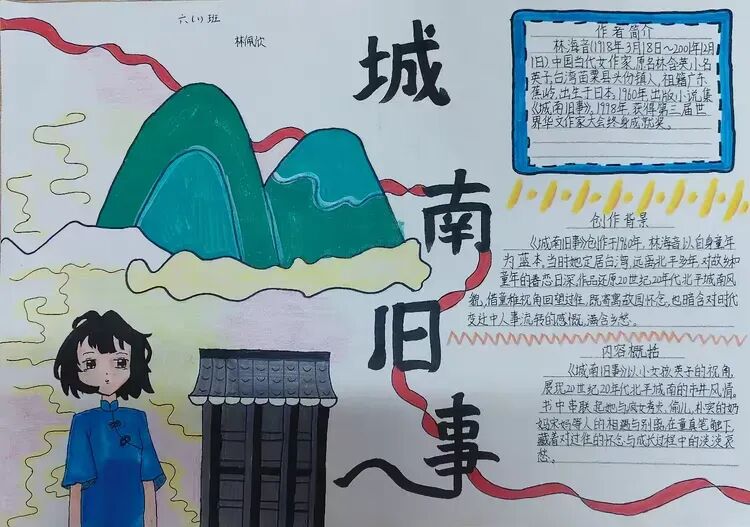 六(1)班
林佩欣
城
南
旧
事
作者简介
林海音(1918年3月18日~2001年12月
1日)中国当代女作家,原名林含英,小名
英子,台湾苗栗县头份镇人,祖籍广东
蕉岭,出生于日本,1960年出版小说集
《城南旧事》,1998年获得第三届世
界华文作家大会终身成就奖。
创作背景
《城南旧事》创作于1960年,林海音以自身童年
为蓝本,当时她定居台湾,远离北平多年,对故乡和
童年的眷恋日深,作品还原20世纪20年代北平城南风
貌,借童稚视角回望过往,既寄寓故园怀念,也暗含对时代
变迁中人事流转的感慨,满含乡愁。
内容概括
《城南旧事》以小女孩英子的视角,
展现20世纪20年代北平城南的市井风情。
书中串联起她与疯女秀贞、偷儿、朴实的奶
妈宋妈等人的相遇与别离,在童真笔触下,
藏着对过往的怀念与成长过程中的淡淡哀
愁。